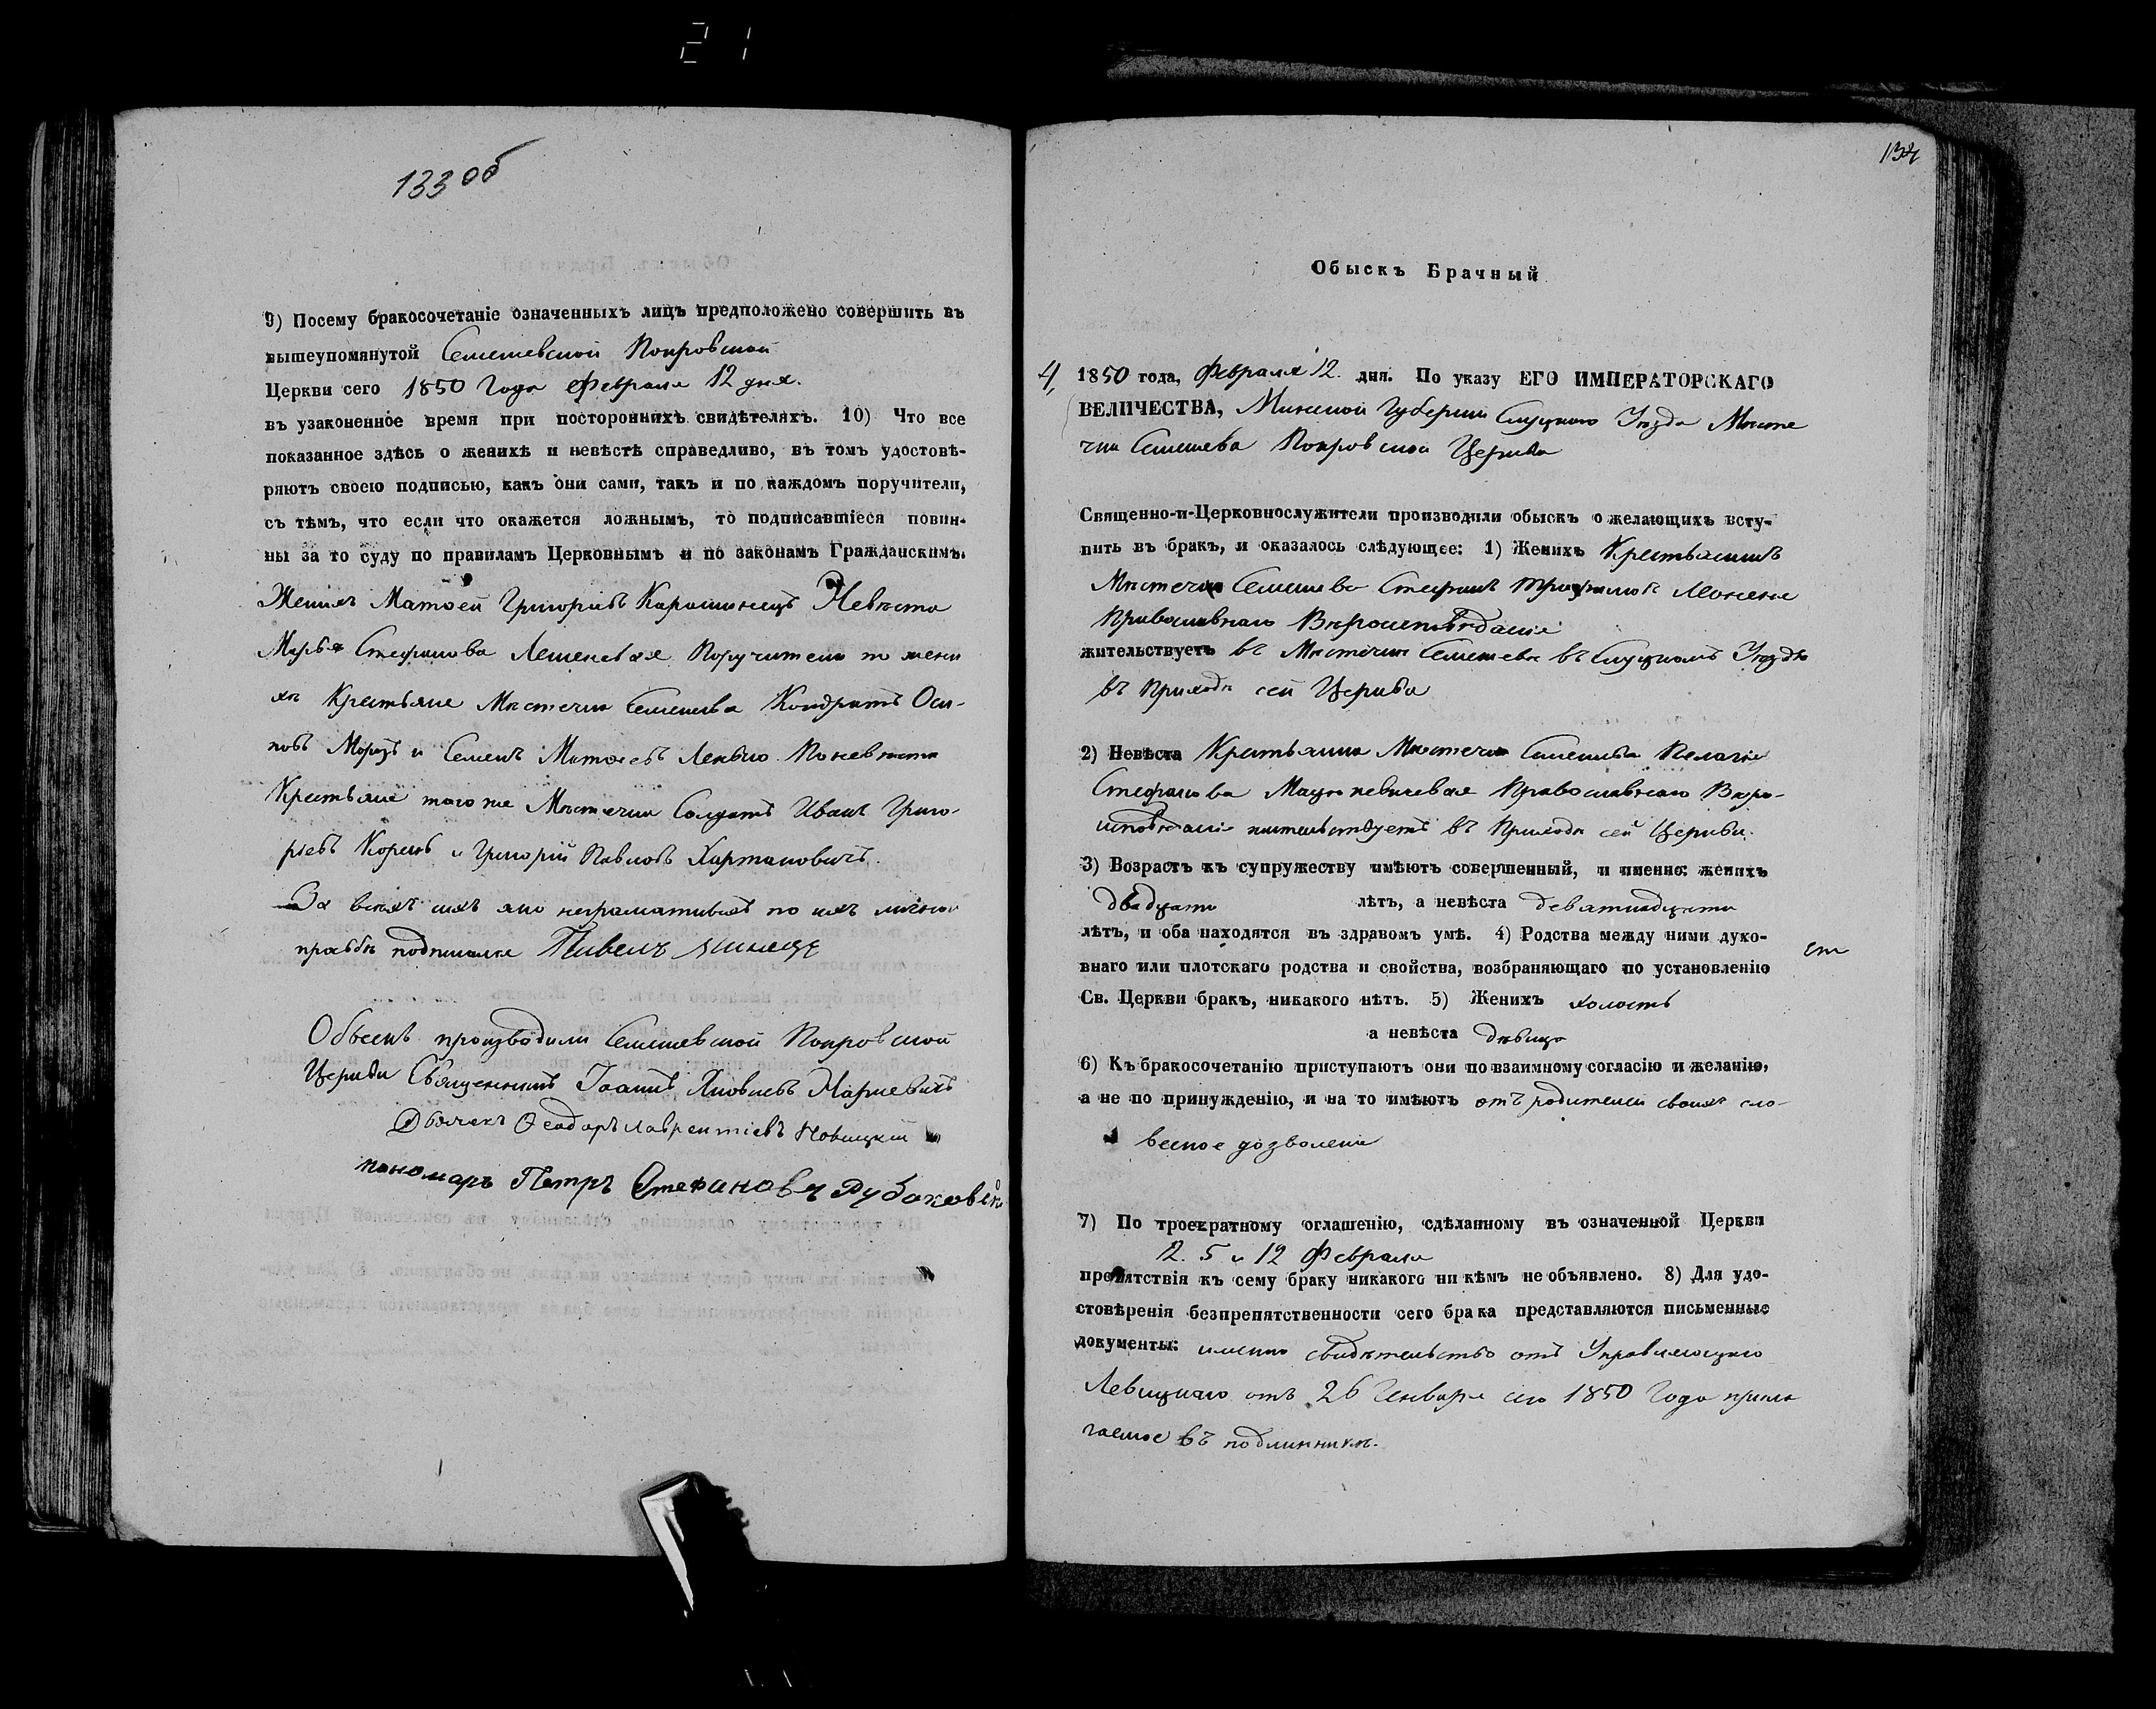 21
133 об
9) Посему бракосочетаніе означенныхъ лицъ предположено совершить въ
вышеупомянутой Семежевской Покровской
Церкви сего 1850 Года Февраля 12 дня.
въ узаконенное время при постороннихъ свидѣтеляхъ. 10) Что все
показанное здѣсь о женихѣ и невѣстѣ справедливо, въ томъ удостовѣ-
ряютъ своею подписью, какъ они сами, такъ и по каждомъ поручители,
съ тѣмъ, что если что окажется ложнымъ, то подписавшіеся повин-
ны за то суду по правиламъ Церковнымъ и по законамъ Гражданскимъ.
Женихъ Матѳей Григорьевъ Невѣста
Марья Стефанова Поручители по жени
хѣ Крестьяне Мѣстечка Семежева Кондратъ Оси-
повъ Морозъ и Семенъ Матѳеевъ По невѣстѣ
Крестьяне того же Мѣстечка Солдатъ Иванъ Григо-
рьевъ и Григорій Павловъ Хартановичъ.
За всѣхъ ихъ яко неграматныхъ по ихъ личной
прозбѣ подписался Павелъ
Обыскъ производили Семежевской Покровской
Церкви Священникъ Іоаннъ Яковлевъ
Дьячекъ Ѳеодоръ Лаврентіевъ Новицкій
пономаръ Петръ Стефановъ
134
Обыскъ Брачный
4, 1850 года, Февраля 12. дня. По указу ЕГО ИМПЕРАТОРСКАГО
ВЕЛИЧЕСТВА, Минской Губерніи Слуцкого Уѣзда Мѣсте
чка Семежева Покровской Церкви
Священно-и-Церковнослужители производили обыскъ о желающихъ всту-
пить въ бракъ, и оказалось слѣдующее: 1) Женихъ Крестьянинъ
Мѣстечка Семежева Стефанъ
Православнаго Вѣроисповѣданія
жительствуетъ въ Мѣстечкѣ Семежевѣ въ Слуцкомъ Уѣздѣ
въ Приходѣ сей Церкви
2) Невѣста Крестьянка Мѣстечка Семежева Пелагія
Стефанова Православнаго Вѣро-
исповѣданія жительствуетъ въ Приходѣ сей Церкви.
3) Возрастъ къ супружеству имѣютъ совершенный, и именно: женихъ
двадцати лѣтъ, а невѣста девятнадцати
лѣтъ, и оба находятся въ здравомъ умѣ. 4) Родства между ними духо-
внаго или плотскаго родства и свойства, возбраняющаго по установленію
Св. Церкви бракъ, никакого нѣтъ. 5) Женихъ холостъ
а невѣста дѣвица
6) Къ бракосочетанію приступаютъ они по взаимному согласію и желанію,
а не по принужденію, и на то имѣютъ отъ родителей своихъ сло-
весное дозволеніе
7) По троекратному оглашенію, сдѣланному въ означенной Церкви
2. 5 и 12 Февраля
препятствія къ сему браку никакого ни кѣмъ не объявлено. 8) Для удо-
стовѣренія безпрепятственности сего брака представляются письменные
документы: именно свидѣтельство отъ Управляющаго
Левицкаго отъ 26 Генваря сего 1850 Года прила
гаемое въ подлинникѣ.